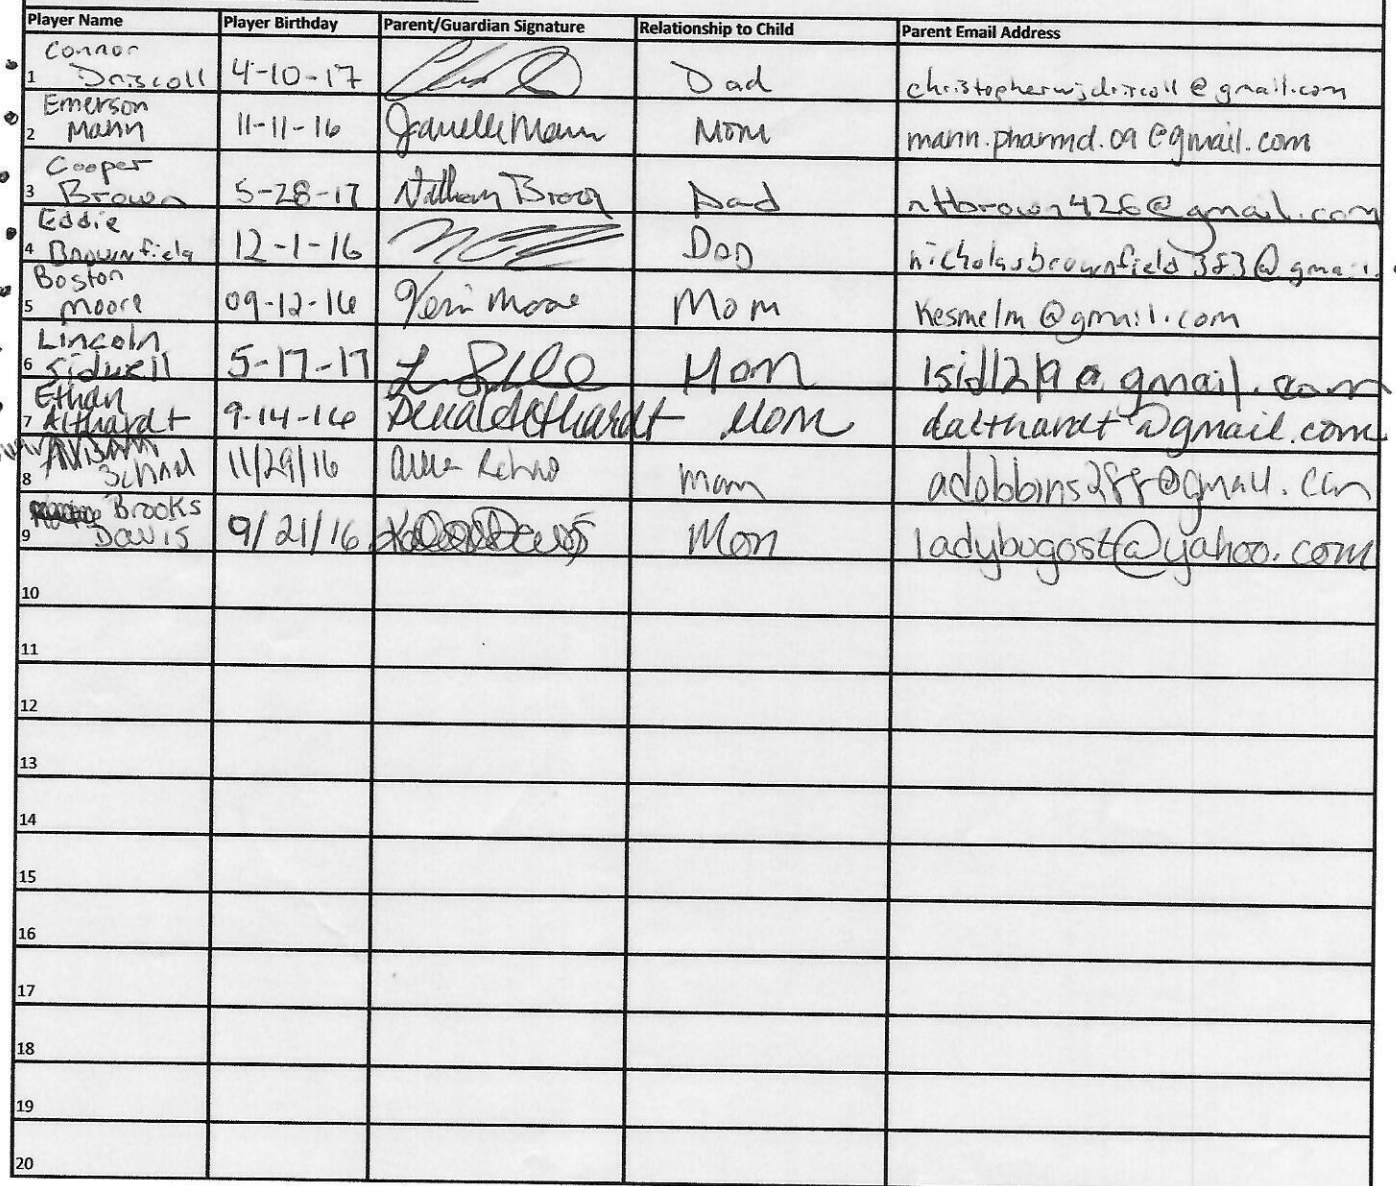 Player Name Player Birthday Parent/Guardian Signature Relationship to Child Parent Email Address
Connor
1 Driscoll 4-10-17 Dad christopherwjdriscoll@gmail.com
Emerson
2 Mann 11-11-16 Jeanelle Mann Mom mann.pharmd.09@gmail.com
Cooper
3 Brown 5-28-17 Nathan Brown Dad ntbrown426@gmail.com
Eddie
4 Brownfield 12-1-16 DAD nicholasbrownfield383@gmai
Boston
5 Moore 09-12-16 Moore Mom kesmelm@gmail.com
Lincoln
6 Sidwell 5-17-17 Mom lsid1219@gmail.com
Ethan
7 Althardt 9-14-16 Althardt Mom dalthardt@gmail.com
8 11/29/16 mom adobbins288@gmail.com
Brooks
9 Davis 9/21/16 Mom ladybugost@yahoo.com
10
11
12
13
14
15
16
17
18
19
20